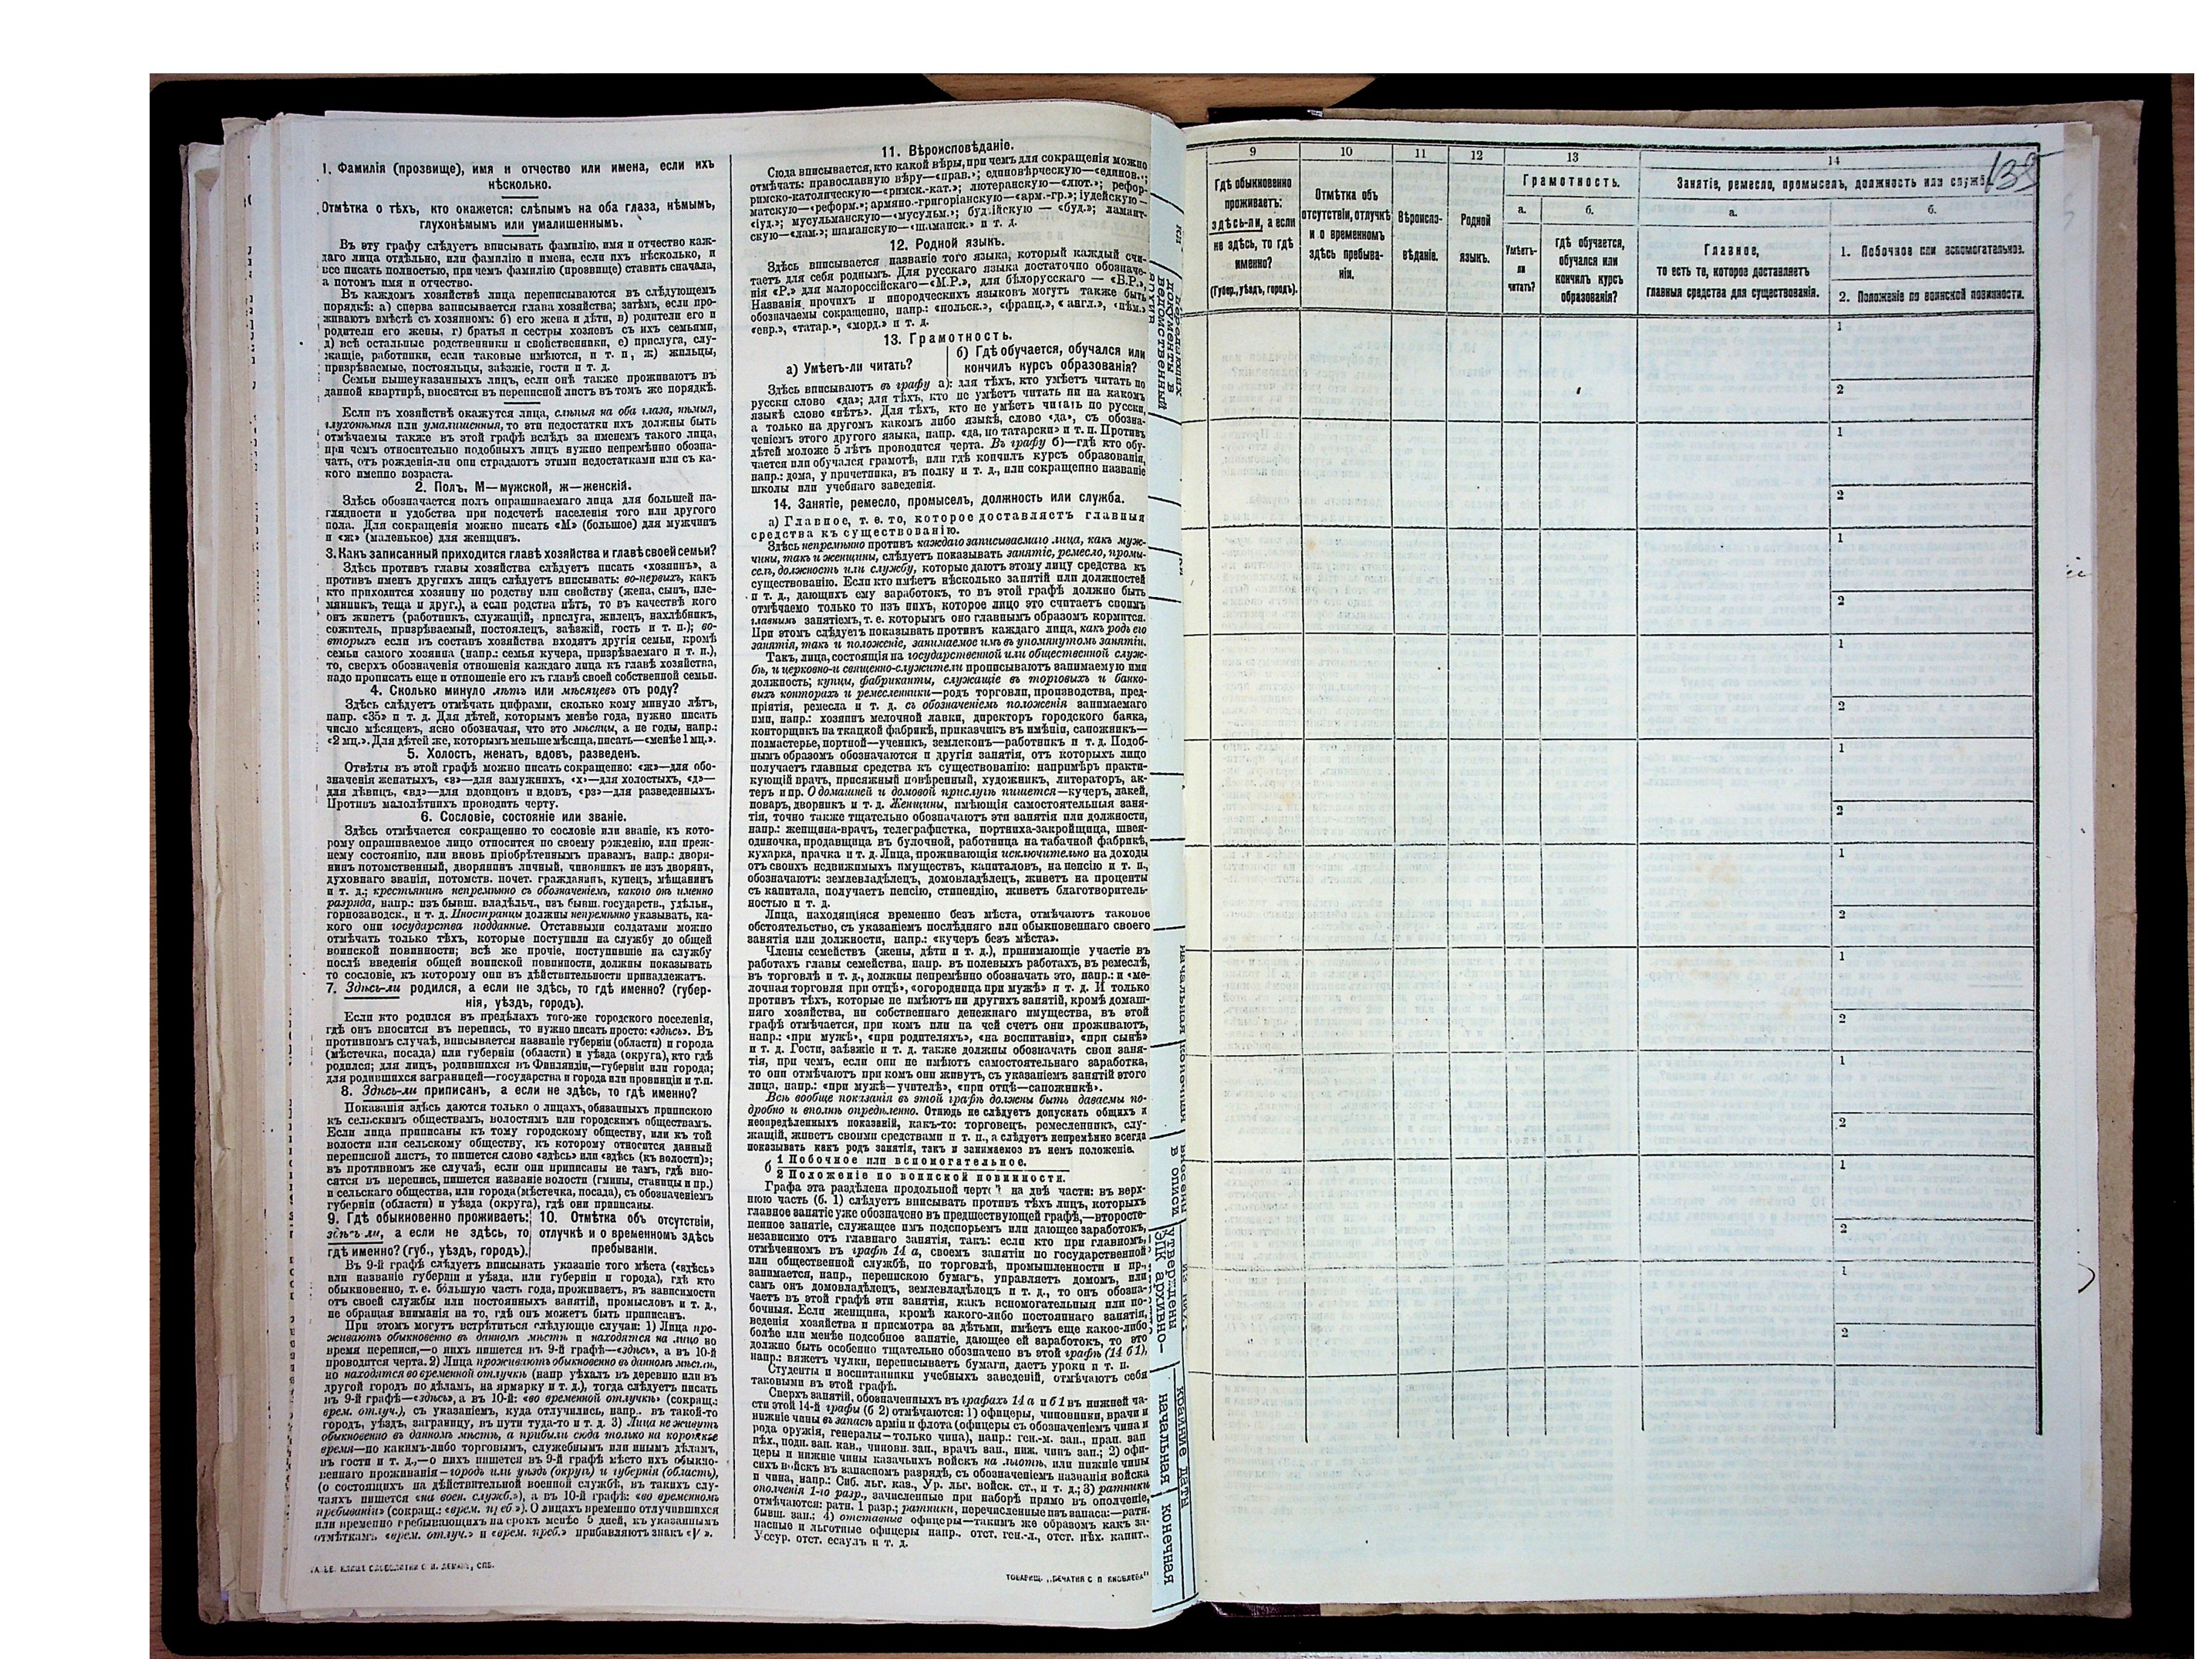 1. Фамилія (прозвище), имя и отчество или имена, если ихъ
нѣсколько.
Отмѣтка о тѣхъ, кто окажется: слѣпымъ на оба глаза, нѣмымъ,
глухонѣмымъ или умалишеннымъ.
Въ эту графу слѣдуетъ вписывать фамилію, имя и отчество каж-
даго лица отдѣльно, или фамилію и имена, если ихъ нѣсколько, и
все писать полностью, при чемъ фамилію (прозвище) ставить сначала,
а потомъ имя и отчество.
Въ каждомъ хозяйствѣ лица переписываются въ слѣдующемъ
порядкѣ: а) сперва записывается глава хозяйства; затѣмъ, если про-
живаютъ вмѣстѣ съ хозяиномъ: б) его жена и дѣти, в) родители его и
родители его жены, г) братья и сестры хозяевъ съ ихъ семьями,
д) всѣ остальные родственники и свойственники, е) прислуга, слу-
жащіе, работники, если таковые имѣются, и т. п, ж) жильцы,
призрѣваемые, постояльцы, заѣзжіе, гости и т. д.
Семьи вышеуказанныхъ лицъ, если онѣ также проживаютъ въ
данной квартирѣ, вносятся въ переписной листъ въ томъ же порядкѣ.
Если въ хозяйствѣ окажутся лица, слѣпыя на оба глаза, нѣмыя,
глухонѣмыя или умалишенныя, то эти недостатки ихъ должны быть
отмѣчаемы также въ этой графѣ вслѣдъ за именемъ такого лица,
при чемъ относительно подобныхъ лицъ нужно непремѣнно обозна-
чать, отъ рожденія-ли они страдаютъ этими недостатками или съ ка-
кого именно возраста.
2. Полъ. М—мужской, ж—женскій.
Здѣсь обозначается полъ опрашиваемаго лица для большей на-
глядности и удобства при подсчетѣ населенія того или другого
пола. Для сокращенія можно писать «М» (большое) для мужчинъ
и «ж» (маленькое) для женщинъ.
3. Какъ записанный приходится главѣ хозяйства и главѣ своей семьи?
Здѣсь противъ главы хозяйства слѣдуетъ писать «хозяинъ», а
противъ именъ другихъ лицъ слѣдуетъ вписывать: во-первыхъ, какъ
кто приходится хозяину по родству или свойству (жена, сынъ, пле-
мянникъ, теща и друг.), а если родства нѣтъ, то въ качествѣ кого
онъ живетъ (работникъ, служащій, прислуга, жилецъ, нахлѣбникъ,
сожитель, призрѣваемый, постоялецъ, заѣзжій, гость и т. п.); во-
вторыхъ если въ составъ хозяйства входятъ другія семьи, кромѣ
семьи самого хозяина (напр.: семья кучера, призрѣваемаго и т. п.),
то, сверхъ обозначенія отношенія каждаго лица къ главѣ хозяйства,
надо прописать еще и отношеніе его къ главѣ своей собственной семьи.
4. Сколько минуло лѣтъ или мѣсяцевъ отъ роду?
Здѣсь слѣдуетъ отмѣчать цифрами, сколько кому минуло лѣтъ,
напр. «35» и т. д. Для дѣтей, которымъ менѣе года, нужно писать
число мѣсяцевъ, ясно обозначая, что это мѣсяцы, а не годы, напр.:
«2 мц.». Для дѣтей же, которымъ меньше мѣсяца, писать—«менѣе 1 мц.».
5. Холостъ, женатъ, вдовъ, разведенъ.
Отвѣты въ этой графѣ можно писать сокращенно: «ж»—для обо-
значенія женатыхъ, «з»—для замужнихъ, «х»—для холостыхъ, «д»—
для дѣвицъ, «вд»—для вдовцовъ и вдовъ, «рз»—для разведенныхъ.
Противъ малолѣтнихъ проводить черту.
6. Сословіе, состояніе или званіе.
Здѣсь отмѣчается сокращенно то сословіе или званіе, къ кото-
рому опрашиваемое лицо относится по своему рожденію, или преж-
нему состоянію, или вновь пріобрѣтеннымъ правамъ, напр.: дворя-
нинъ потомственный, дворянинъ личный, чиновникъ не изъ дворянъ,
духовнаго званія, потомств. почет. гражданинъ, купецъ, мѣщанинъ
и т. д.; крестьянинъ непремѣнно съ обозначеніемъ, какого онъ именно
разряда, напр.: изъ бывш. владѣльч., изъ бывш. государств., удѣльн.,
горнозаводск., и т. д. Иностранцы должны непремѣнно указывать, ка-
кого они государства подданные. Отставными солдатами можно
отмѣчать только тѣхъ, которые поступили на службу до общей
воинской повинности; всѣ же прочіе, поступившіе на службу
послѣ введенія общей воинской повинности, должны показывать
то сословіе, къ которому они въ дѣйствительности принадлежатъ.
7. Здѣсь-ли родился, а если не здѣсь, то гдѣ именно? (губер-
нія, уѣздъ, городъ).
Если кто родился въ предѣлахъ того-же городского поселенія,
гдѣ онъ вносится въ перепись, то нужно писать просто: «здѣсь». Въ
противномъ случаѣ, вписывается названіе губерніи (области) и города
(мѣстечка, посада) или губерніи (области) и уѣзда (округа), кто гдѣ
родился; для лицъ, родившихся въ Финляндіи,—губерніи или города;
для родившихся заграницей—государства и города или провинціи и т.п.
8. Здѣсь-ли приписанъ, а если не здѣсь, то гдѣ именно?
Показанія здѣсь даются только о лицахъ, обязанныхъ припискою
къ сельскимъ обществамъ, волостямъ или городскимъ обществамъ.
Если лица приписаны къ тому городскому обществу, или къ той
волости или сельскому обществу, къ которому относится данный
переписной листъ, то пишется слово «здѣсь» или «здѣсь (къ волости)»;
въ противномъ же случаѣ, если они приписаны не тамъ, гдѣ вно-
сятся въ перепись, пишется названіе волости (гмины, станицы и пр.)
и сельскаго общества, или города (мѣстечка, посада), съ обозначеніемъ
губерніи (области) и уѣзда (округа), гдѣ они приписаны.
9. Гдѣ обыкновенно проживаетъ:
здѣсь-ли, а если не здѣсь, то
гдѣ именно? (губ., уѣздъ, городъ).
10. Отмѣтка объ отсутствіи,
отлучкѣ и о временномъ здѣсь
пребываніи.
Въ 9-й графѣ слѣдуетъ вписывать указаніе того мѣста («здѣсь»
или названіе губерніи и уѣзда, или губерніи и города), гдѣ кто
обыкновенно, т. е. бо́льшую часть года, проживаетъ, въ зависимости
отъ своей службы или постоянныхъ занятій, промысловъ и т. д.,
не обращая вниманія на то, гдѣ онъ можетъ быть приписанъ.
При этомъ могутъ встрѣтиться слѣдующіе случаи: 1) Лица про-
живаютъ обыкновенно въ данномъ мѣстѣ и находятся на лицо во
время переписи,—о нихъ пишется въ 9-й графѣ—«здѣсь», а въ 10-й
проводится черта. 2) Лица проживаютъ обыкновенно въ данномъ мѣстѣ,
но находятся во временной отлучкѣ (напр уѣхалъ въ деревню или въ
другой городъ по дѣламъ, на ярмарку и т. д.), тогда слѣдуетъ писать
въ 9-й графѣ—«здѣсь», а въ 10-й: «во временной отлучкѣ» (сокращ.:
врем. отлуч.), съ указаніемъ, куда отлучились, напр.. въ такой-то
городъ, уѣздъ, заграницу, въ пути туда-то и т. д. 3) Лица не живутъ
обыкновенно въ данномъ мѣстѣ, а прибыли сюда только на короткое
время—по какимъ-либо торговымъ, служебнымъ или инымъ дѣламъ,
въ гости и т. д.,—о нихъ пишется въ 9-й графѣ мѣсто ихъ обыкно-
веннаго проживанія—городъ или уѣздъ (округъ) и губернія (область),
(о состоящихъ на дѣйствительной военной службѣ, въ такихъ слу-
чаяхъ пишется «на воен. служб.»), а въ 10-й графѣ: «во временномъ
пребываніи» (сокращ.: «врем. преб»). О лицахъ временно отлучившихся
или временно пребывающихъ на срокъ менѣе 5 дней, къ указаннымъ
отмѣткамъ «врем. отлуч.» и «врем. преб.» прибавляютъ знакъ «V».
11. Вѣроисповѣданіе.
Сюда вписывается, кто какой вѣры, при чемъ для сокращенія можно
отмѣчать: православную вѣру—«прав.»; единовѣрческую—«единов.»;
римско-католическую—«римск.-кат.»; лютеранскую—«лют.»; рефор-
матскую—«реформ.»; армяно-григоріанскую—«арм.-гр.»; іудейскую—
«іуд.»; мусульманскую—«мусульм.»; буддійскую—«буд.»; ламаит-
скую—«лам.»; шаманскую—«шаманск.» и т. д.
12. Родной языкъ.
Здѣсь вписывается названіе того языка, который каждый счи-
таетъ для себя роднымъ. Для русскаго языка достаточно обозначе-
нія «Р.» для малороссійскаго—«М.Р.», для бѣлорусскаго—«Б.Р.»,
Названія прочихъ и инородческихъ языковъ могутъ также быть
обозначаемы сокращенно, напр.: «польск.», «франц.», «англ.», «нѣм.»
«евр.», «татар.», «морд.» и т. д.
13. Грамотность.
а) Умѣетъ-ли читать?
б) Гдѣ обучается, обучался или
кончилъ курсъ образованія?
Здѣсь вписываютъ въ графу а): для тѣхъ, кто умѣетъ читать по
русски слово «да»; для тѣхъ, кто не умѣетъ читать ни на какомъ
языкѣ слово «нѣтъ». Для тѣхъ, кто не умѣетъ читать по русски,
а только на другомъ какомъ либо языкѣ, слово «да», съ обозна-
ченіемъ этого другого языка, напр. «да, по татарски» и т. п. Противъ
дѣтей моложе 5 лѣтъ проводится черта. Въ графу б)—гдѣ кто обу-
чается или обучался грамотѣ, или гдѣ кончилъ курсъ образованія,
напр.: дома, у причетника, въ полку и т. д., или сокращенно названіе
школы или учебнаго заведенія.
14. Занятіе, ремесло, промыселъ, должность или служба.
а) Главное, т. е. то, которое доставляетъ главныя
средства къ существованію.
Здѣсь непремѣнно противъ каждаго записываемаго лица, какъ муж-
чины, такъ и женщины, слѣдуетъ показывать занятіе, ремесло, промы-
селъ, должность или службу, которые даютъ этому лицу средства къ
существованію. Если кто имѣетъ нѣсколько занятій или должностей
и т. д., дающихъ ему заработокъ, то въ этой графѣ должно быть
отмѣчаемо только то изъ нихъ, которое лицо это считаетъ своимъ
главнымъ занятіемъ, т. е. которымъ оно главнымъ образомъ кормится.
При этомъ слѣдуетъ показывать противъ каждаго лица, какъ родъ его
занятія, такъ и положеніе, занимаемое имъ въ упомянутомъ занятіи.
Такъ, лица, состоящія на государственной или общественной служ-
бѣ, и церковно-и священно-служители прописываютъ занимаемую ими
должность; купцы, фабриканты, служащіе въ торговыхъ и банко-
выхъ конторахъ и ремесленники—родъ торговли, производства, пред-
пріятія, ремесла и т. д. съ обозначеніемъ положенія занимаемаго
ими, напр.: хозяинъ мелочной лавки, директоръ городского банка,
конторщикъ на ткацкой фабрикѣ, приказчикъ въ имѣніи, сапожникъ—
подмастерье, портной—ученикъ, землекопъ—работникъ и т. д. Подоб-
нымъ образомъ обозначаются и другія занятія, отъ которыхъ лицо
получаетъ главныя средства къ существованію: напримѣръ практи-
кующій врачъ, присяжный повѣренный, художникъ, литераторъ, ак-
теръ и пр. О домашней и домовой прислугѣ пишется—кучеръ, лакей,
поваръ, дворникъ и т. д. Женщины, имѣющія самостоятельныя заня-
тія, точно также тщательно обозначаютъ эти занятія или должности,
напр.: женщина-врачъ, телеграфистка, портниха-закройщица, швея-
одиночка, продавщица въ булочной, работница на табачной фабрикѣ,
кухарка, прачка и т. д. Лица, проживающія исключительно на доходы
отъ своихъ недвижимыхъ имуществъ, капиталовъ, на пенсію и т. п.,
обозначаютъ: землевладѣлецъ, домовладѣлецъ, живетъ на проценты
съ капитала, получаетъ пенсію, стипендію, живетъ благотворитель-
ностью и т. д.
Лица, находящіяся временно безъ мѣста, отмѣчаютъ таковое
обстоятельство, съ указаніемъ послѣдняго или обыкновеннаго своего
занятія или должности, напр.: «кучеръ безъ мѣста».
Члены семействъ (жены, дѣти и т. д.), принимающіе участіе въ
работахъ главы семейства, напр. въ полевыхъ работахъ, въ ремеслѣ,
въ торговлѣ и т. д., должны непремѣнно обозначать это, напр.: и «ме-
лочная торговля при отцѣ», «огородница при мужѣ» и т. д. И только
противъ тѣхъ, которые не имѣютъ ни другихъ занятій, кромѣ домаш-
няго хозяйства, ни собственнаго денежнаго имущества, въ этой
графѣ отмѣчается, при комъ или на чей счетъ они проживаютъ,
напр.: «при мужѣ», «при родителяхъ», «на воспитаніи», «при сынѣ»
и т. д. Гости, заѣзжіе и т. д. также должны обозначать свои заня-
тія, при чемъ, если они не имѣютъ самостоятельнаго заработка,
то они отмѣчаютъ при комъ они живутъ, съ указаніемъ занятій этого
лица, напр.: «при мужѣ—учителѣ», «при отцѣ—сапожникѣ».
Всѣ вообще показанія въ этой графѣ должны быть даваемы по-
дробно и вполнѣ опредѣленно. Отнюдь не слѣдуетъ допускать общихъ и
неопредѣленныхъ показаній, какъ-то: торговецъ, ремесленникъ, слу-
жащій, живетъ своими средствами и т. п., а слѣдуетъ непремѣнно всегда
показывать какъ родъ занятія, такъ и занимаемое въ немъ положеніе.
б 1 Побочное или вспомогательное.
2 Положеніе по воинской повинности.
Графа эта раздѣлена продольной чертой на двѣ части: въ верх-
нюю часть (б. 1) слѣдуетъ вписывать противъ тѣхъ лицъ, которыхъ
главное занятіе уже обозначено въ предшествующей графѣ,—второсте-
пенное занятіе, служащее имъ подспорьемъ или дающее заработокъ,
независимо отъ главнаго занятія, такъ: если кто при главномъ,
отмѣченномъ въ графѣ 14 а, своемъ занятіи по государственной
или общественной службѣ, по торговлѣ, промышленности и пр.,
занимается, напр., перепискою бумагъ, управляетъ домомъ, или
самъ онъ домовладѣлецъ, землевладѣлецъ и т. д., то онъ обозна-
чаетъ въ этой графѣ эти занятія, какъ вспомогательныя или по-
бочныя. Если женщина, кромѣ какого-либо постояннаго занятія,
веденія хозяйства и присмотра за дѣтьми, имѣетъ еще какое-либо
болѣе или менѣе подсобное занятіе, дающее ей заработокъ, то это
должно быть особенно тщательно обозначено въ этой графѣ (14 б 1),
напр.: вяжетъ чулки, переписываетъ бумаги, даетъ уроки и т. п.
Студенты и воспитанники учебныхъ заведеній, отмѣчаютъ себя
таковыми въ этой графѣ.
Сверхъ занятій, обозначенныхъ въ графахъ 14 а и б 1 въ нижней ча-
сти этой 14-й графы (б 2) отмѣчаются: 1) офицеры, чиновники, врачи и
нижніе чины въ запасѣ арміи и флота (офицеры съ обозначеніемъ чина и
рода оружія, генералы—только чина), напр.: ген.-м. зап., прап. зап
пѣх., подп. зап. кав., чиновн. зап., врачъ зап., ниж. чинъ зап.; 2) офи-
церы и нижніе чины казачьихъ войскъ на льготѣ, или нижніе чины
сихъ войскъ въ запасномъ разрядѣ, съ обозначеніемъ названія войска
и чина, напр.: Сиб. льг. каз., Ур. льг. войск. ст., и т. д.; 3) ратники
ополченія 1-го разр., зачисленные при наборѣ прямо въ ополченіе,
отмѣчаются: ратн. 1 разр.; ратники, перечисленные изъ запаса:—ратн.
бывш. зап.; 4) отставные офицеры—такимъ же образомъ какъ за-
пасные и льготные офицеры напр.. отст. ген.-л., отст. пѣх. капит.,
Уссур. отст. есаулъ и т. д.
ТОВАРИЩ. „ПЕЧАТНЯ С П ЯКОВЛЕВА“
документы в
ведомственный
начальная
конечная
внесены
в описи
утверждены
ЭПК архивно-
крайние даты
начальная
конечная
135
9
10
11
12
13
14
Гдѣ обыкновенно
проживаетъ:
здѣсь-ли, а если
не здѣсь, то гдѣ
именно?
(Губер., уѣздъ, городъ).
Отмѣтка объ
отсутствіи, отлучкѣ
и о временномъ
здѣсь пребыва-
ніи.
Вѣроиспо-
вѣданіе.
Родной
языкъ.
Грамотность.
а.
б.
Умѣетъ-
ли
читать?
гдѣ обучается,
обучался или
кончилъ курсъ
образованія?
Занятіе, ремесло, промыселъ, должность или служба.
а.
б.
Главное,
то есть то, которое доставляетъ
главныя средства для существованія.
1. Побочное или вспомогательное.
2. Положеніе по воинской повинности.
1
2
1
2
1
2
1
2
1
2
1
2
1
2
1
2
1
2
1
2